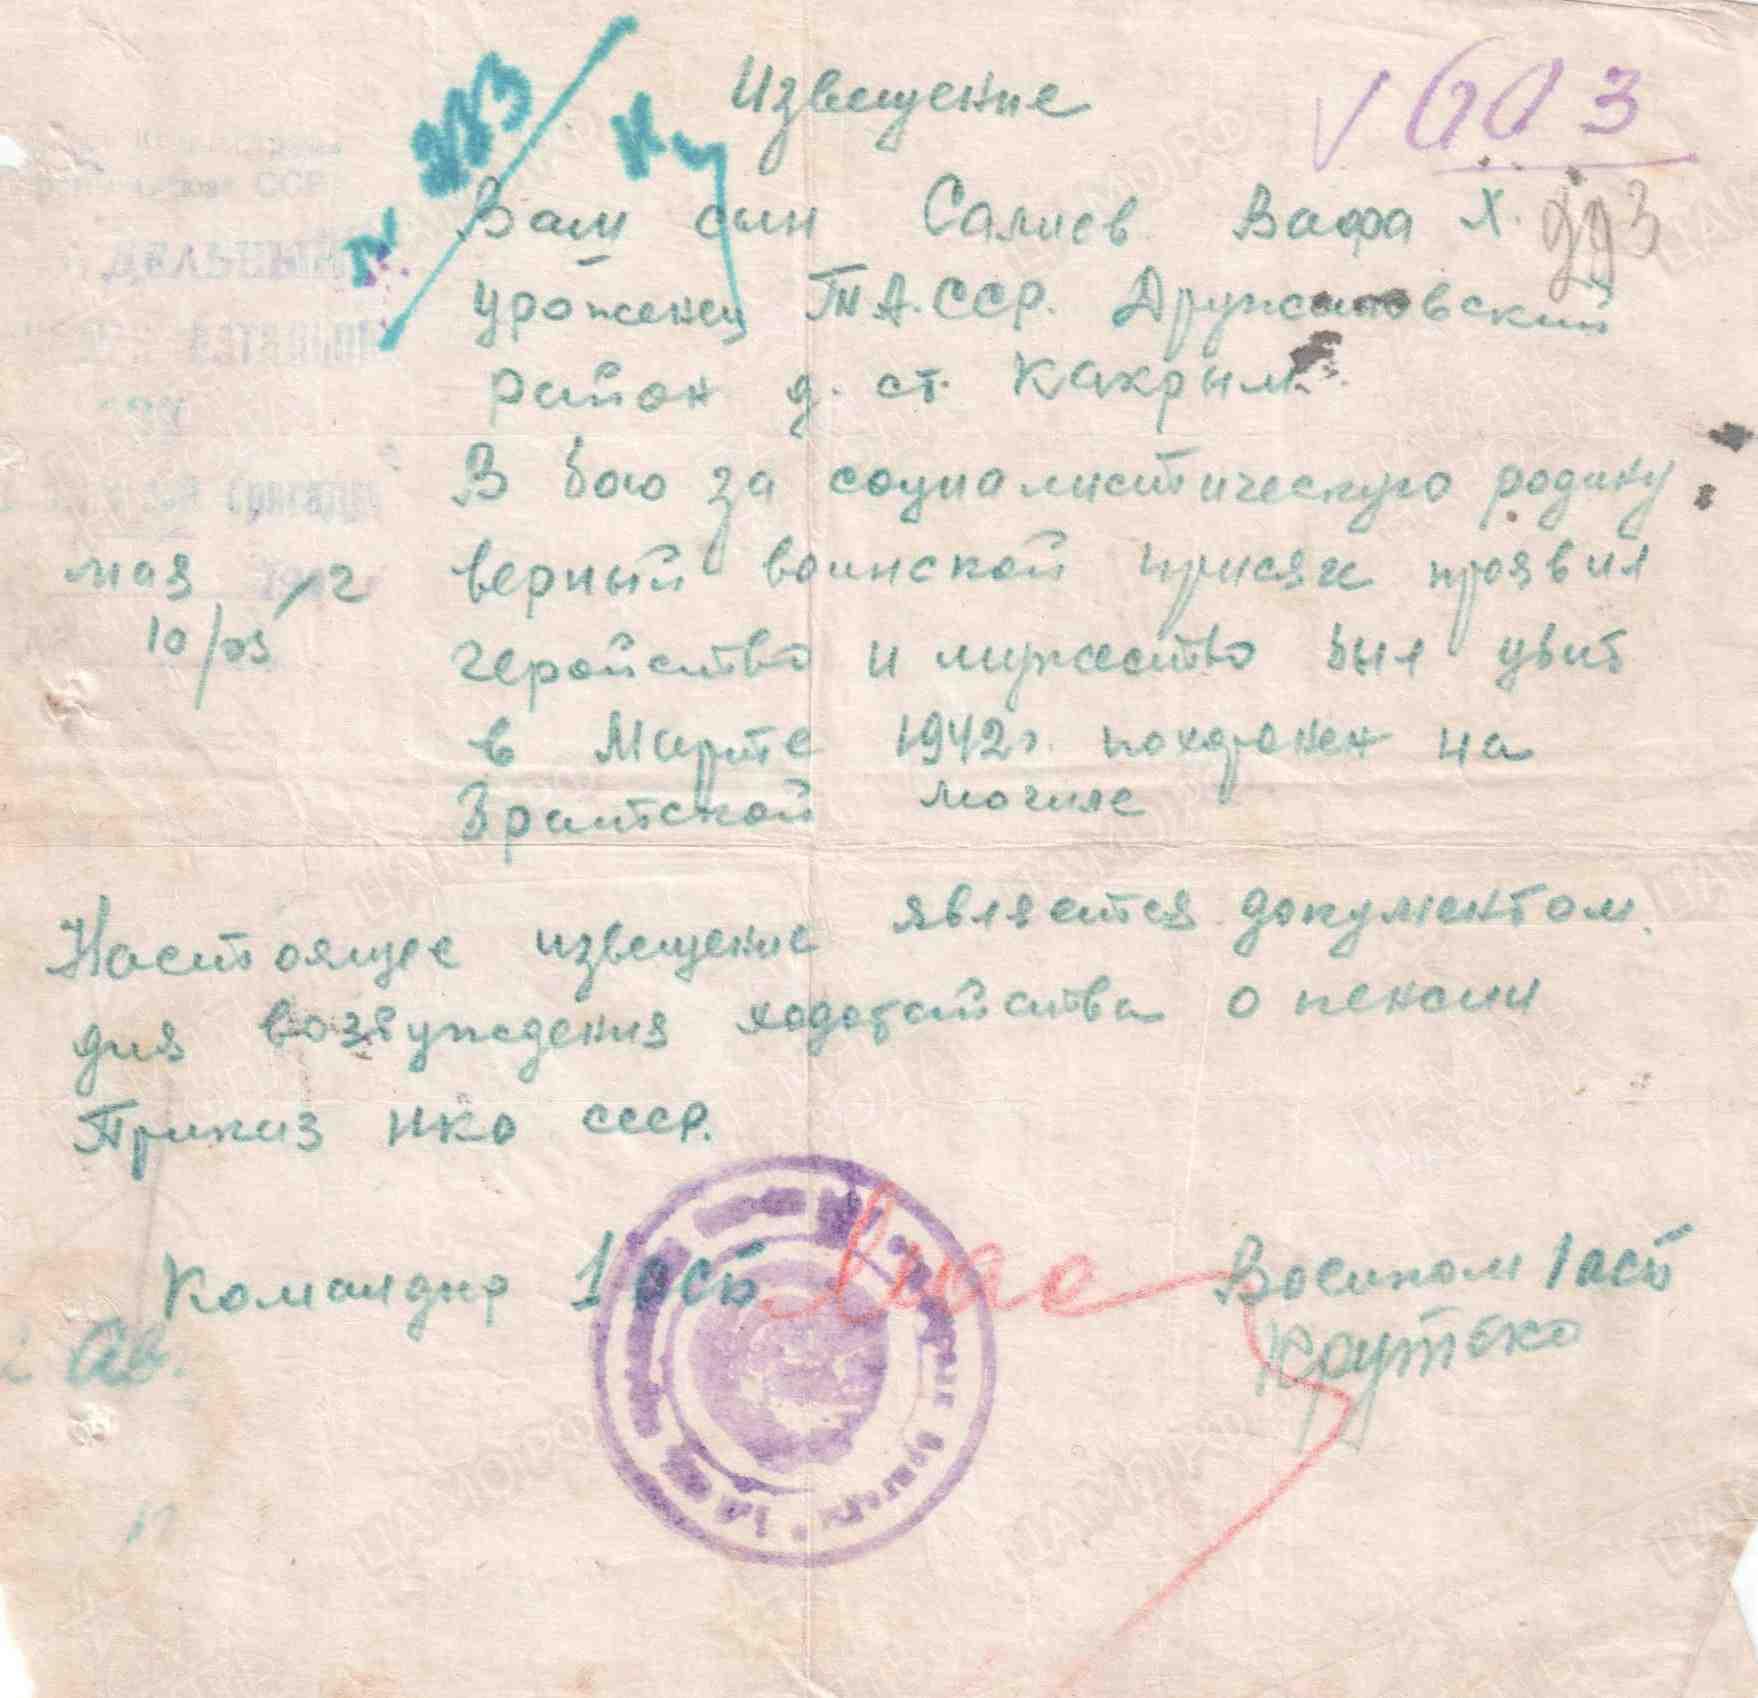 Извещение
603
Ваш сын Салиев Вафа Х.
223
уроженец ТА.ССР. Дружановский
район д. ст. Какрым.
В бою за социалистическую родину
верный воинской присяге проявил
мая 12
10/05
геройство и мужество был убит
в Марте 1942г. похоронен на
Братской могиле
Настоящее извещение является документом.
для возбуждения ходотайства о пенсии
Приказ НКО СССР.
Командир 1 осб
Военком 1 осб